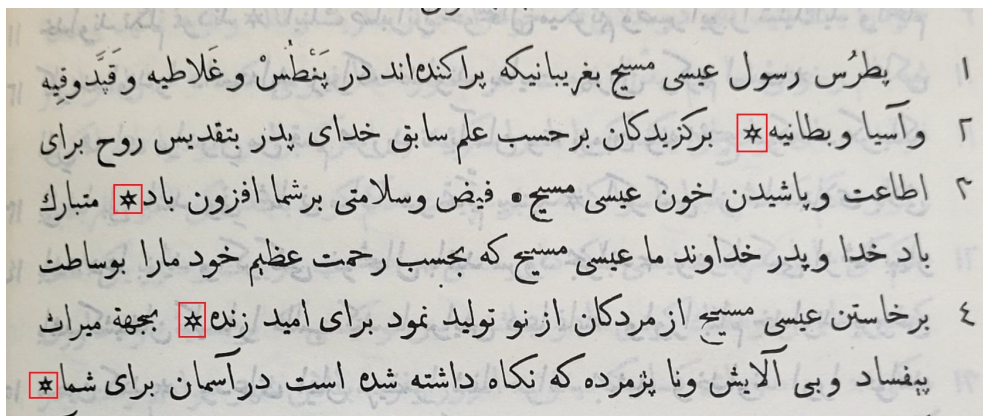 ۱ پطرُس رسول عیسی مسیح بغریبانیکه پراکنده‌اند در پَنْطُسْ و غَلاطیه و قَپَّدوقِیه
۲ و آسیا و بطانیه * برکزیدکان برحسب علم سابق خدای پدر بتقدیس روح برای
۳ اطاعت و پاشیدن خون عیسی مسیح • فیض وسلامتی برشما افزون باد * متبارك
باد خدا و پدر خداوند ما عیسی مسیح که بحسب رحمت عظیم خود مارا بوساطت
٤ برخاستن عیسی مسیح از مردکان از نو تولید نمود برای امید زنده * بجهة میراث
بیفساد و بی آلایش ونا پژمرده که نکاه داشته شده است در آسمان برای شما *